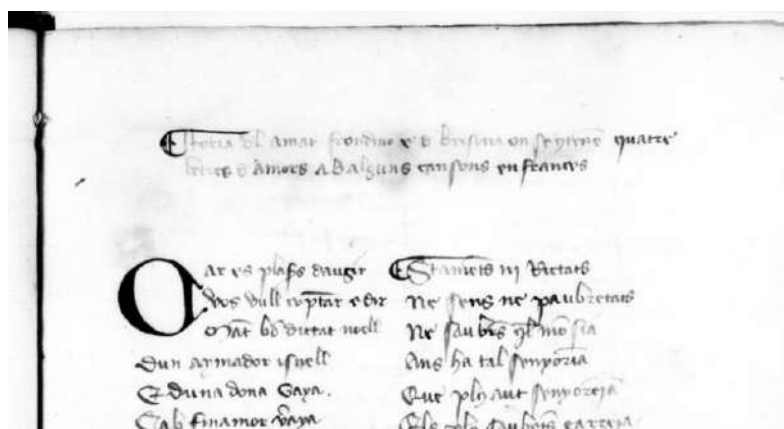 Storia del amat Frondino e de Brisona on se contenen quatre
letres d amors ab alguns cansons en frances
Car es plasens dausir
Vos vull comptar e dir
dictat novell
Dun aymador isnell
E duna dona gaya
Cab finamor veraya
Stamens ni Rictats
Ne sens ne paubretats
Ne saubers quel mon sia
Ans ha tal senyoria
Que plus aut senyoreja